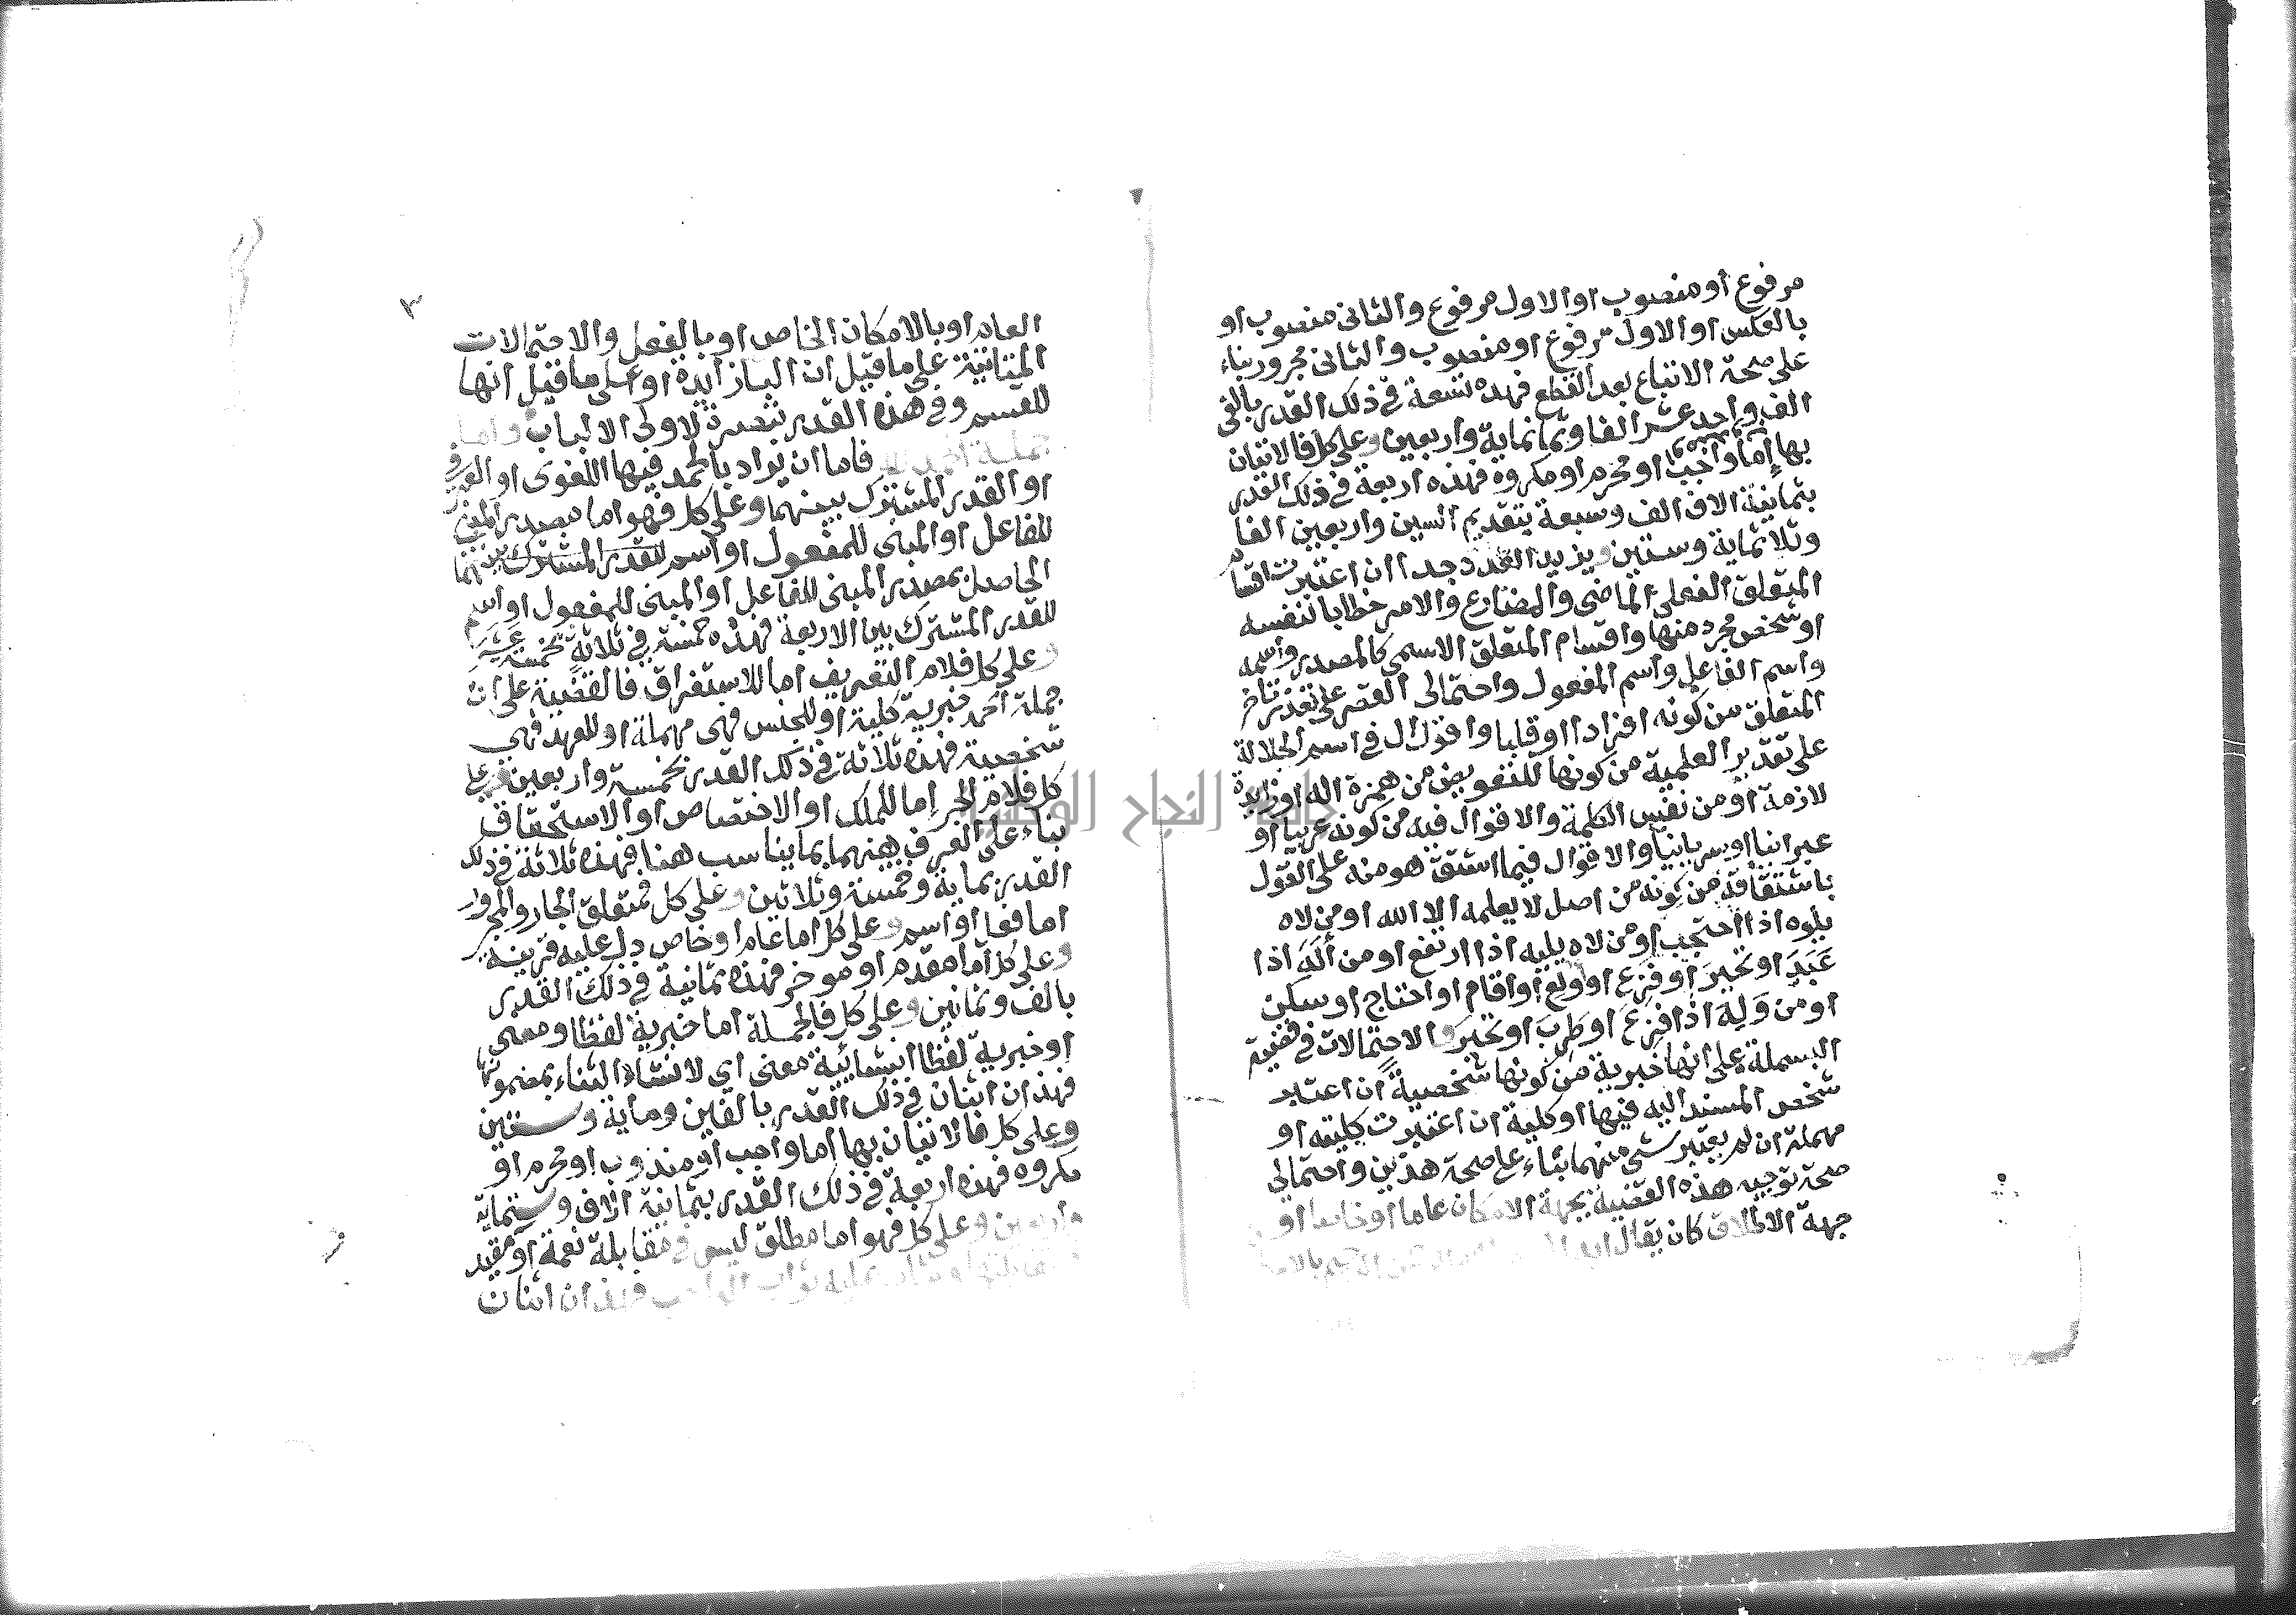 مرفوع أو منصوب او الاول مرفوع والثانى منصوب او
بالعكس او الاول مرفوع او منصوب والثانى مجرور بناء
على صحة الاتباع بعد القطع فهذه تسعة فى ذلك القدر بالفى
الف واحد عشر الفا وثمانماية واربعين وعلى كل فالاتيان
بها إما واجب او محرم او مكروه فهذه اربعة فى ذلك القدر
بثمانية الاف الف وسبعة بتقديم السين واربعين الفا
وثلاثماية وستين ويزيد العدد جدا ان اعتبرت اقسام
المتعلق الفعلى الماضى والمضارع والامر خطابا لنفسه
او شخص مجرد منها واقسام المتعلق الاسمى كالمصدر واسمه
واسم الفاعل واسم المفعول واحتمالى القصر على تقدير تاخر
المتعلق من كونه افرادا او قلبا واقوال ال فى اسم الجلالة
على تقدير العلمية من كونها للتعويض من همزة اله او زايدة
لازمة او من نفس الكلمة والاقوال فيه من كونه عربيا او
عبرانيا او سريانيا والاقوال فيما اشتق هو منه على القول
باشتقاقه من كونه من اصل لا يعلمه الا الله او من لاه
يلوه اذا احتجب او من لاه يليه اذا ارتفع او من أَلَهَ اذا
عَبَدَ او تحير او فزع او ولع او اقام او احتاج او سكن
او من وَلِهَ اذا فزع او طرب او تحير والاحتمالات فى قضية
البسملة على انها خبرية من كونها شخصية ان اعتبر
شخص المسند اليه فيها او كلية ان اعتبرت كليته او
مهملة ان لم يعتبر شى منهما بناء على صحة هذين واحتمالى
صحة توجيه هذه القضية بجهة الامكان عاما او خاصا او
جهة الاطلاق كان يقال
٣
العام او بالامكان الخاص او بالفعل والاحتمالات
على ما قيل ان البا زايدة او على ما قيل انها
للقسم وفى هذه القدر تبصرة لاولى الالباب واما
جملة الحمد لله فاما ان يراد بالحمد فيها اللغوى او العرفى
او القدر المشترك بينهما وعلى كل فهو اما مصدر المبنى
للفاعل او المبنى للمفعول او اسم للقدر المشترك بينهما
الحاصل بمصدر المبنى للفاعل او المبنى للمفعول او اسم
للقدر المشترك بين الاربعة فهذه خمسة فى ثلاثة بخمسة عشر
وعلى كل فلام التعريف اما للاستغراق فالقضية على ان
جملة الحمد خبرية كلية او للجنس فهى مهملة او للعهد فهى
شخصية فهذه ثلاثة فى ذلك القدر بخمسة واربعين وعلى
كل فلام الجر إما للملك او الاختصاص او الاستحقاق
بناء على الفرق بينهما بما يناسب هنا فهذه ثلاثة فى ذلك
القدر بماية وخمسة وثلاثين وعلى كل فمتعلق الجار والمجرور
اما فعل او اسم وعلى كل اما عام او خاص دل عليه قرينة
وعلى كل اما مقدم او موخر فهذه ثمانية فى ذلك القدر
بالف وثمانين وعلى كل فالجملة اما خبرية لفظا ومعنى
او خبرية لفظا انشائية معنى اى لانشاء الثناء بمضمونها
فهذان اثنان فى ذلك القدر بالفين وماية وستين
وعلى كل فالاتيان بها اما واجب او مندوب او محرم او
مكروه فهذه اربعة فى ذلك القدر بثمانية الاف وستماية
واربعين وعلى كل فهو اما مطلق ليس فى مقابلة نعمة او مقيد
عليه ثواب الواجب فهذان اثنان